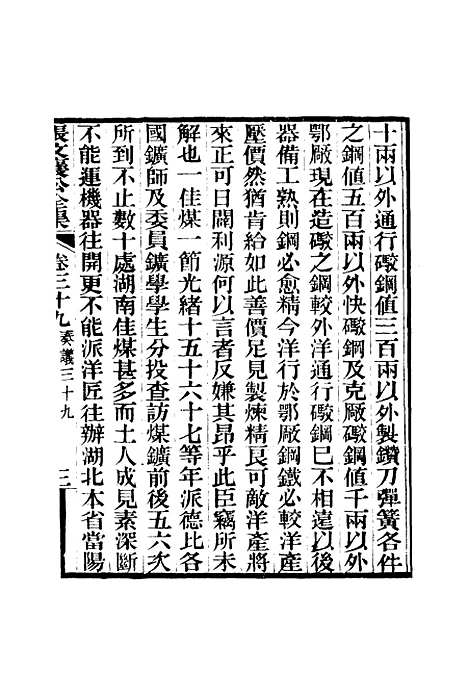 十兩以外通行礮鋼值三百兩以外製鑽刀彈簧各件
之鋼值五百兩以外快礮鋼及克厰礮鋼值千兩以外
鄂厰現在造礮之鋼較外洋通行礮鋼已不相遠以後
器備工熟則鋼必愈精今洋行於鄂厰鋼鐵必較洋產
壓價然猶肯給如此善價足見製煉精良可敵洋產將
來正可日闢利源何以言者反嫌其昂乎此臣竊所未
解也一佳煤一節光緒十五十六十七等年派德比各
國鑛師及委員鑛學學生分投查訪煤鑛前後五六次
所到不止數十處湖南佳煤甚多而土人成見素深斷
不能運機器往開更不能派洋匠往辦湖北本省當陽
張文襄公全集 卷三十九 奏議三十九 三